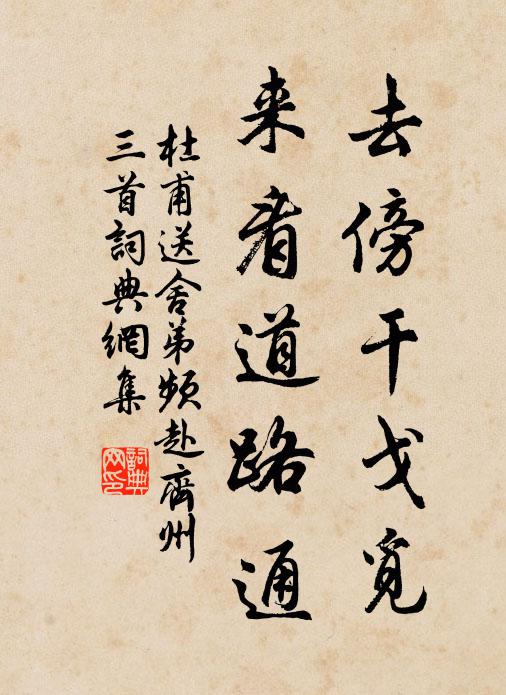 去傍干戈覓
来看道路通
杜甫送舍弟頻赴齊州
三首詞典網集
詞典
网印